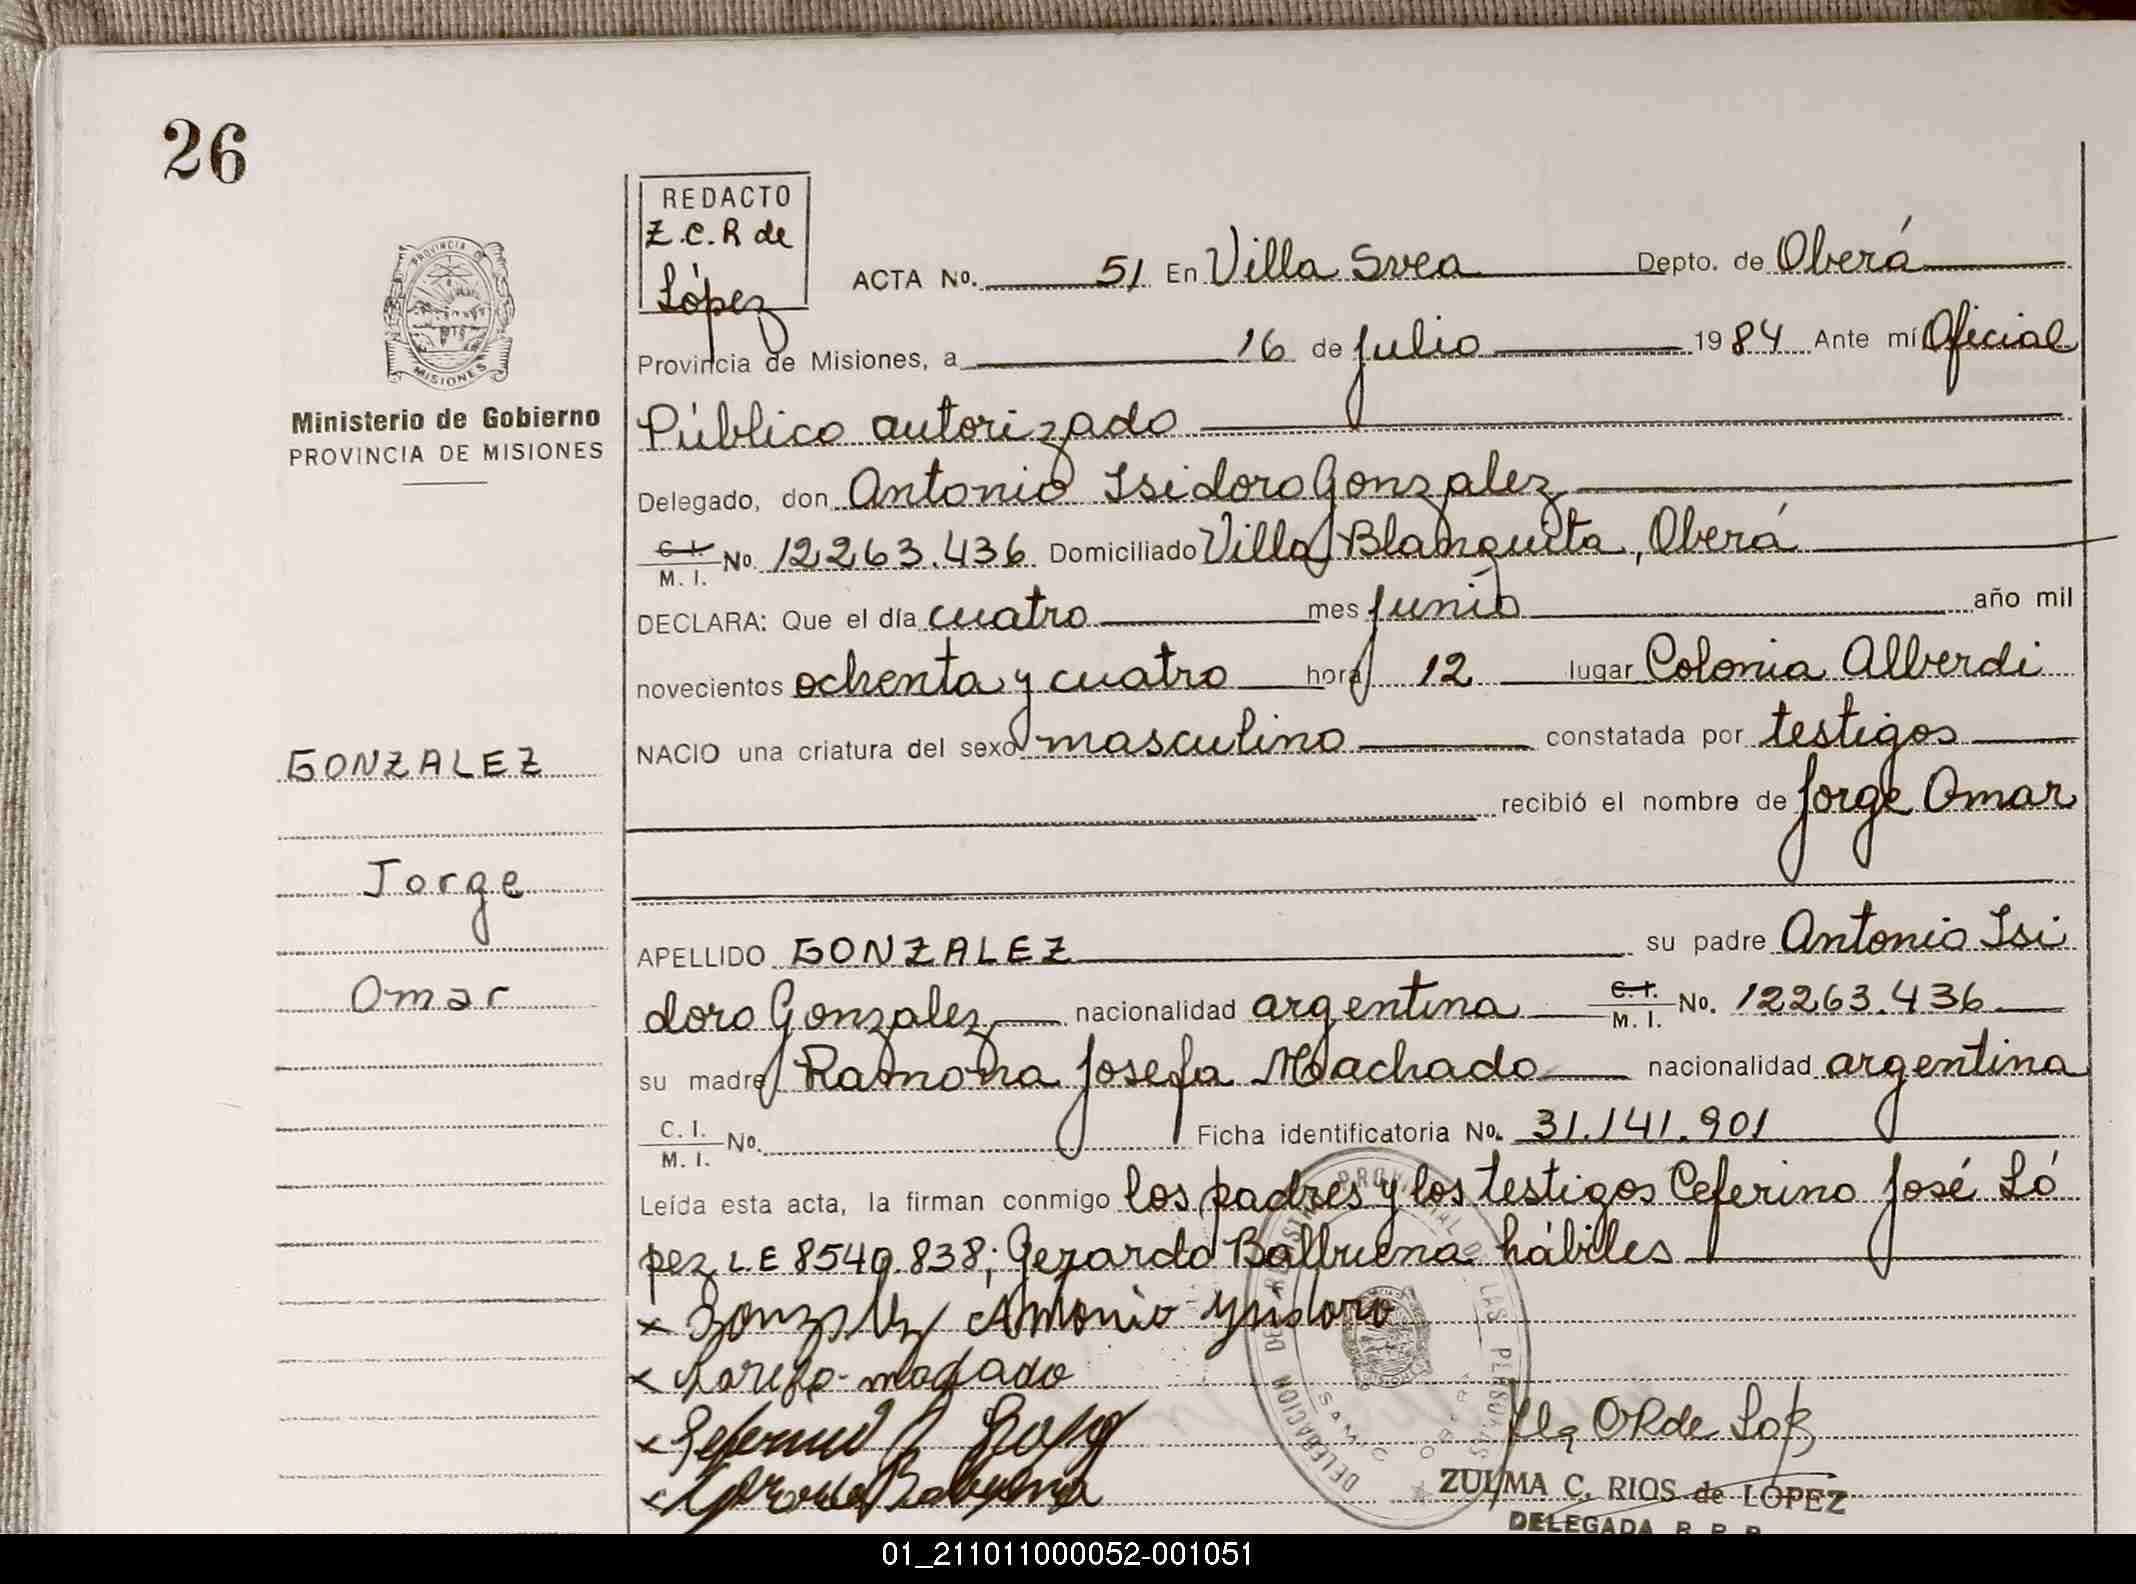 26
REDACTO
Z.C.R de
López
PROVINCIA DE
MISIONES
Ministerio de Gobierno
PROVINCIA DE MISIONES
ACTA No. 51 En Villa Svea Depto. de Oberá
Provincia de Misiones, a 16 de julio 1984 Ante mí Oficial
Público autorizado
Delegado, don Antonio Isidoro Gonzalez
C. I. / M. I. No. 12263.436 Domiciliado Villa Blanquita, Oberá
DECLARA: Que el día cuatro mes junio año mil
novecientos ochenta y cuatro hora 12 lugar Colonia Alberdi
NACIO una criatura del sexo masculino constatada por testigos
recibió el nombre de Jorge Omar
GONZALEZ
Jorge
Omar
APELLIDO GONZALEZ su padre Antonio Isi
doro Gonzalez nacionalidad argentina C. I. / M. I. No. 12263.436
su madre Ramona Josefa Machado nacionalidad argentina
C. I. / M. I. No. Ficha identificatoria No. 31.141.901
Leída esta acta, la firman conmigo los padres y los testigos Ceferino José Ló
pez L.E 8540.838; Gerardo Balbuena hábiles
x Gonzalez Antonio Ysidoro
x
x
x
ZULMA C. RIOS de LOPEZ
DELEGADA R. P. P.
01_211011000052-001051